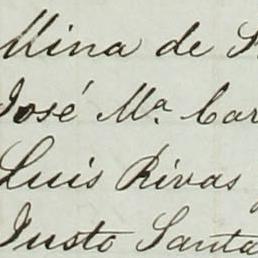 Mina de S
José Mª. Car
Luis Rivas y
Justo Santa